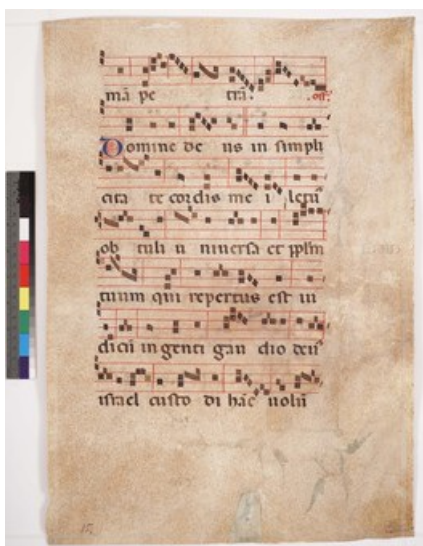 mã pe trã. off.
Domine de us in simpli
cita te cordis me i letu᷒
ob tuli u niuersa et pplm
tuum qui repertus est in
dicit in genti gau dio deus
israel custo di hãc uolũ